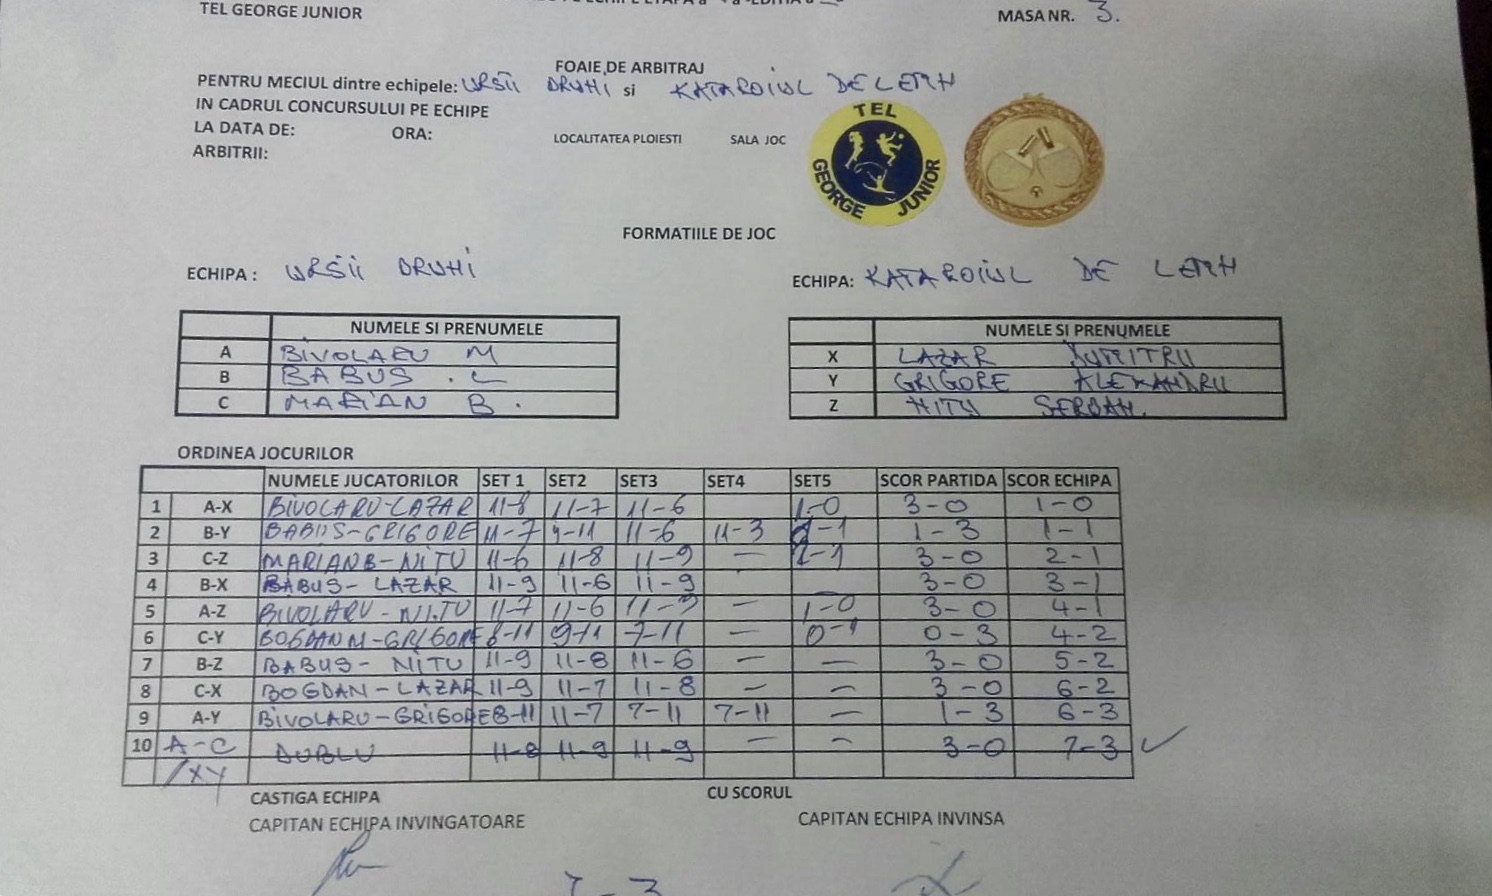 TEL GEORGE JUNIOR
MASA NR. 3.
FOAIE DE ARBITRAJ
PENTRU MECIUL dintre echipele: URSII DRUHI si KATAROIUL DE LEMH
IN CADRUL CONCURSULUI PE ECHIPE
LA DATA DE: ORA: LOCALITATEA PLOIESTI SALA JOC
ARBITRII:
TEL GEORGE JUNIOR
FORMATIILE DE JOC
ECHIPA : URSII DRUHI ECHIPA: KATAROIUL DE LEMH
NUMELE SI PRENUMELE NUMELE SI PRENUMELE
A BIVOLARU M X LAZAR DUMITRU
B BABUS . L Y GRIGORE ALEXANDRU
C MARIAN B . Z NITU SERBAH.
ORDINEA JOCURILOR
NUMELE JUCATORILOR SET 1 SET2 SET3 SET4 SET5 SCOR PARTIDA SCOR ECHIPA
1 A-X BIVOLARU-LAZAR 11-8 11-7 11-6 1-0 3-0 1-0
2 B-Y BABUS-GRIGORE 11-7 9-11 11-6 11-3 1-3 1-1
3 C-Z MARIANB-NITU 11-6 11-8 11-9 — 2-1 3-0 2-1
4 B-X BABUS- LAZAR 11-9 11-6 11-9 3-0 3-1
5 A-Z BIVOLARU-NITU 11-7 11-6 11-9 — 1-0 3-0 4-1
6 C-Y BOGDAN M-GRIGORE 8-11 9-11 7-11 — 0-1 0-3 4-2
7 B-Z BABUS- NITU 11-9 11-8 11-6 — — 3-0 5-2
8 C-X BOGDAN-LAZAR 11-9 11-7 11-8 — — 3-0 6-2
9 A-Y BIVOLARU-GRIGORE 8-11 11-7 7-11 7-11 — 1-3 6-3
10 A-C DUBLU 11-8 11-9 11-9 — — 3-0 7-3
/XY
CASTIGA ECHIPA CU SCORUL
CAPITAN ECHIPA INVINGATOARE CAPITAN ECHIPA INVINSA
7-3